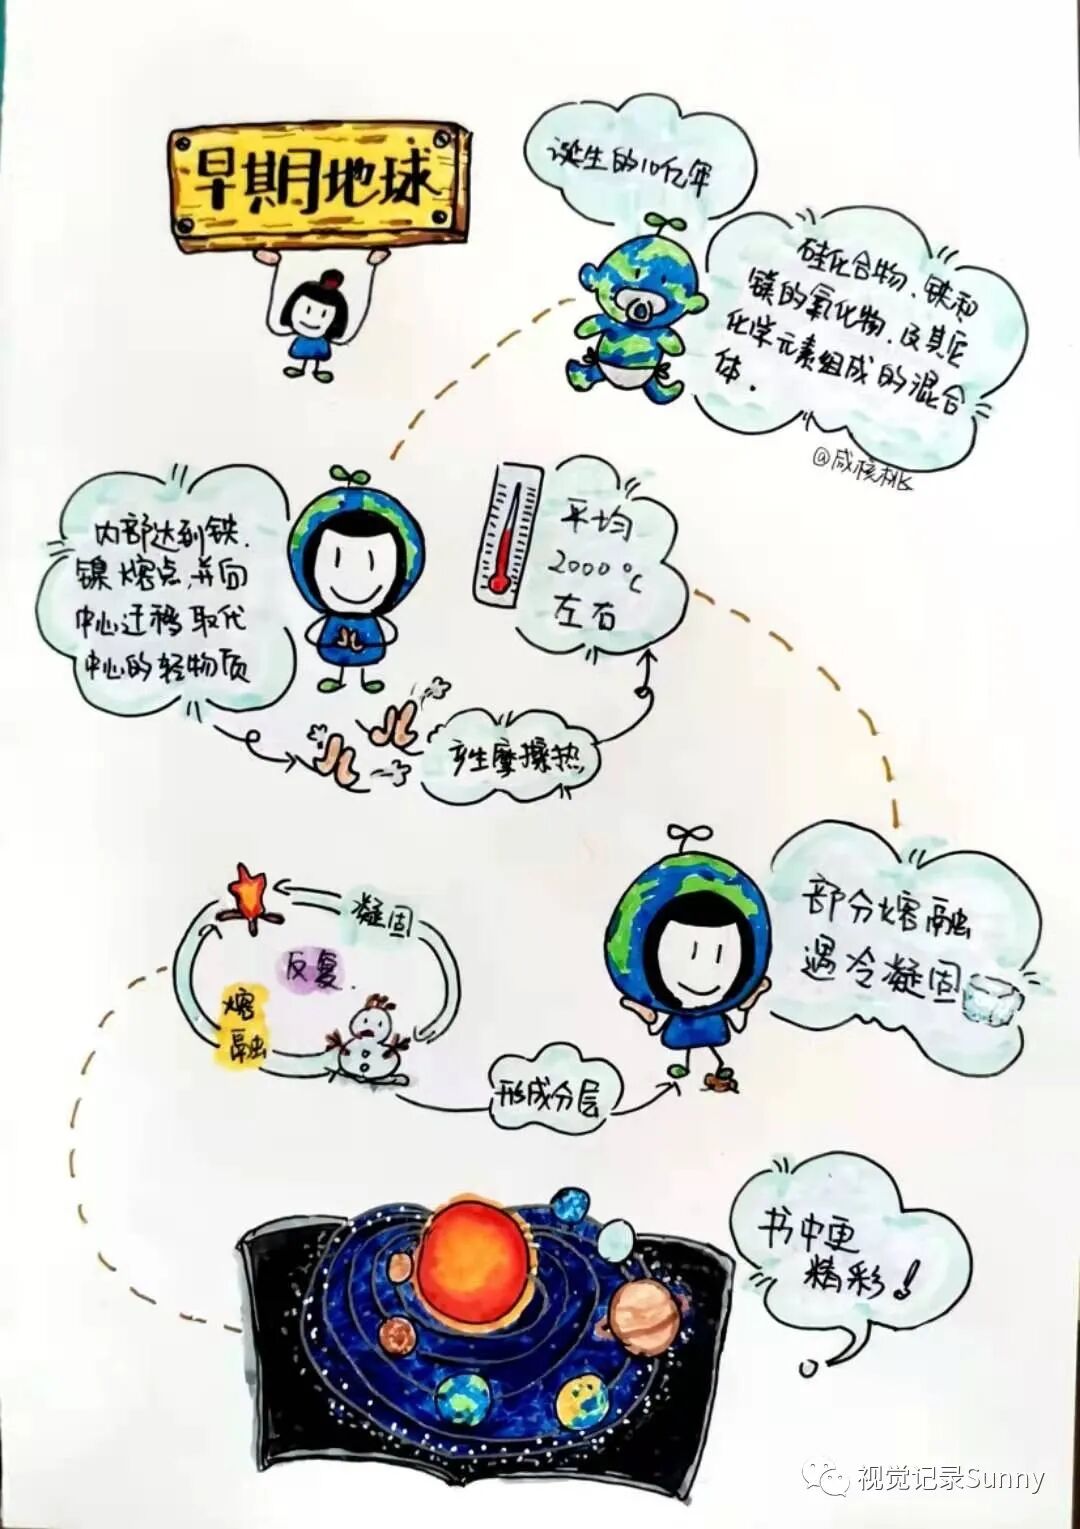 早期地球
诞生的10亿年
硅化合物、铁和
镁的氧化物、及其它
化学元素组成的混合
体。
@咸核桃
内部达到铁、
镍熔点,并向
中心迁移取代
中心的轻物质
产生摩擦热
平均
2000℃
左右
部分熔融
遇冷凝固
凝固
反复
熔
融
形成分层
书中更
精彩!
视觉记录Sunny